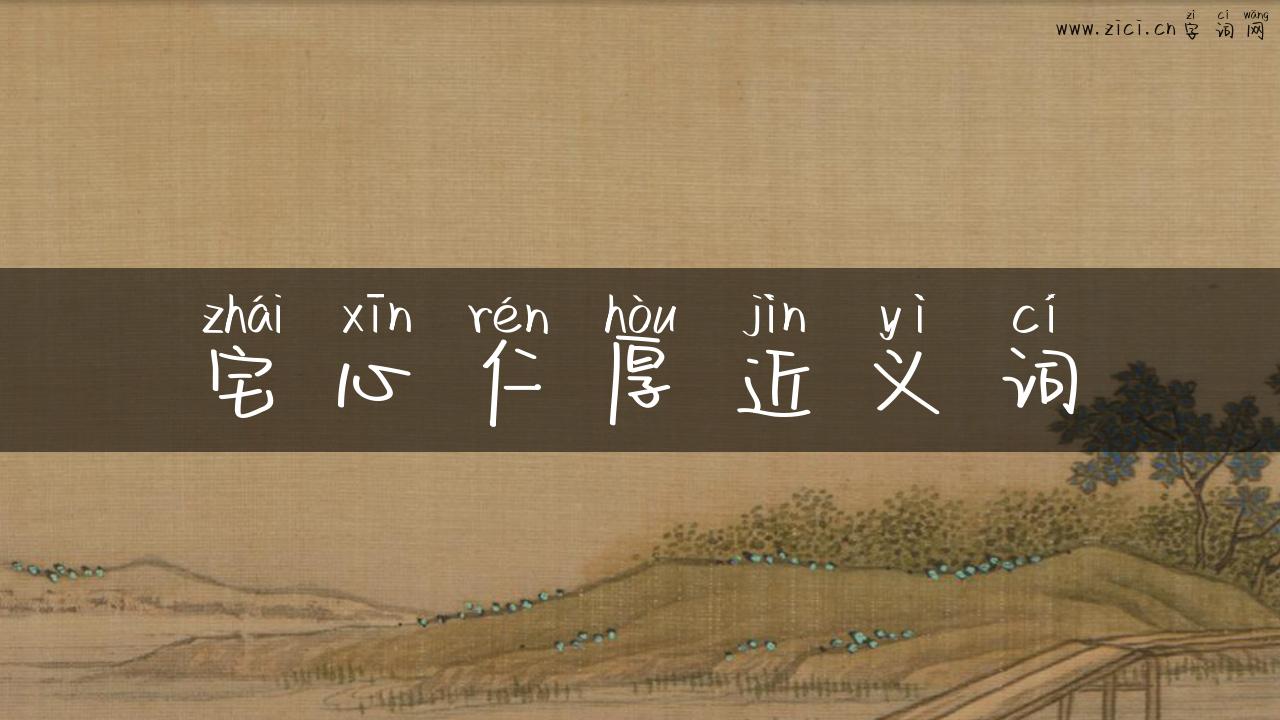 zì cí wǎng
www.zici.cn字词网
zhái xīn rén hòu jìn yì cí
宅心仁厚近义词